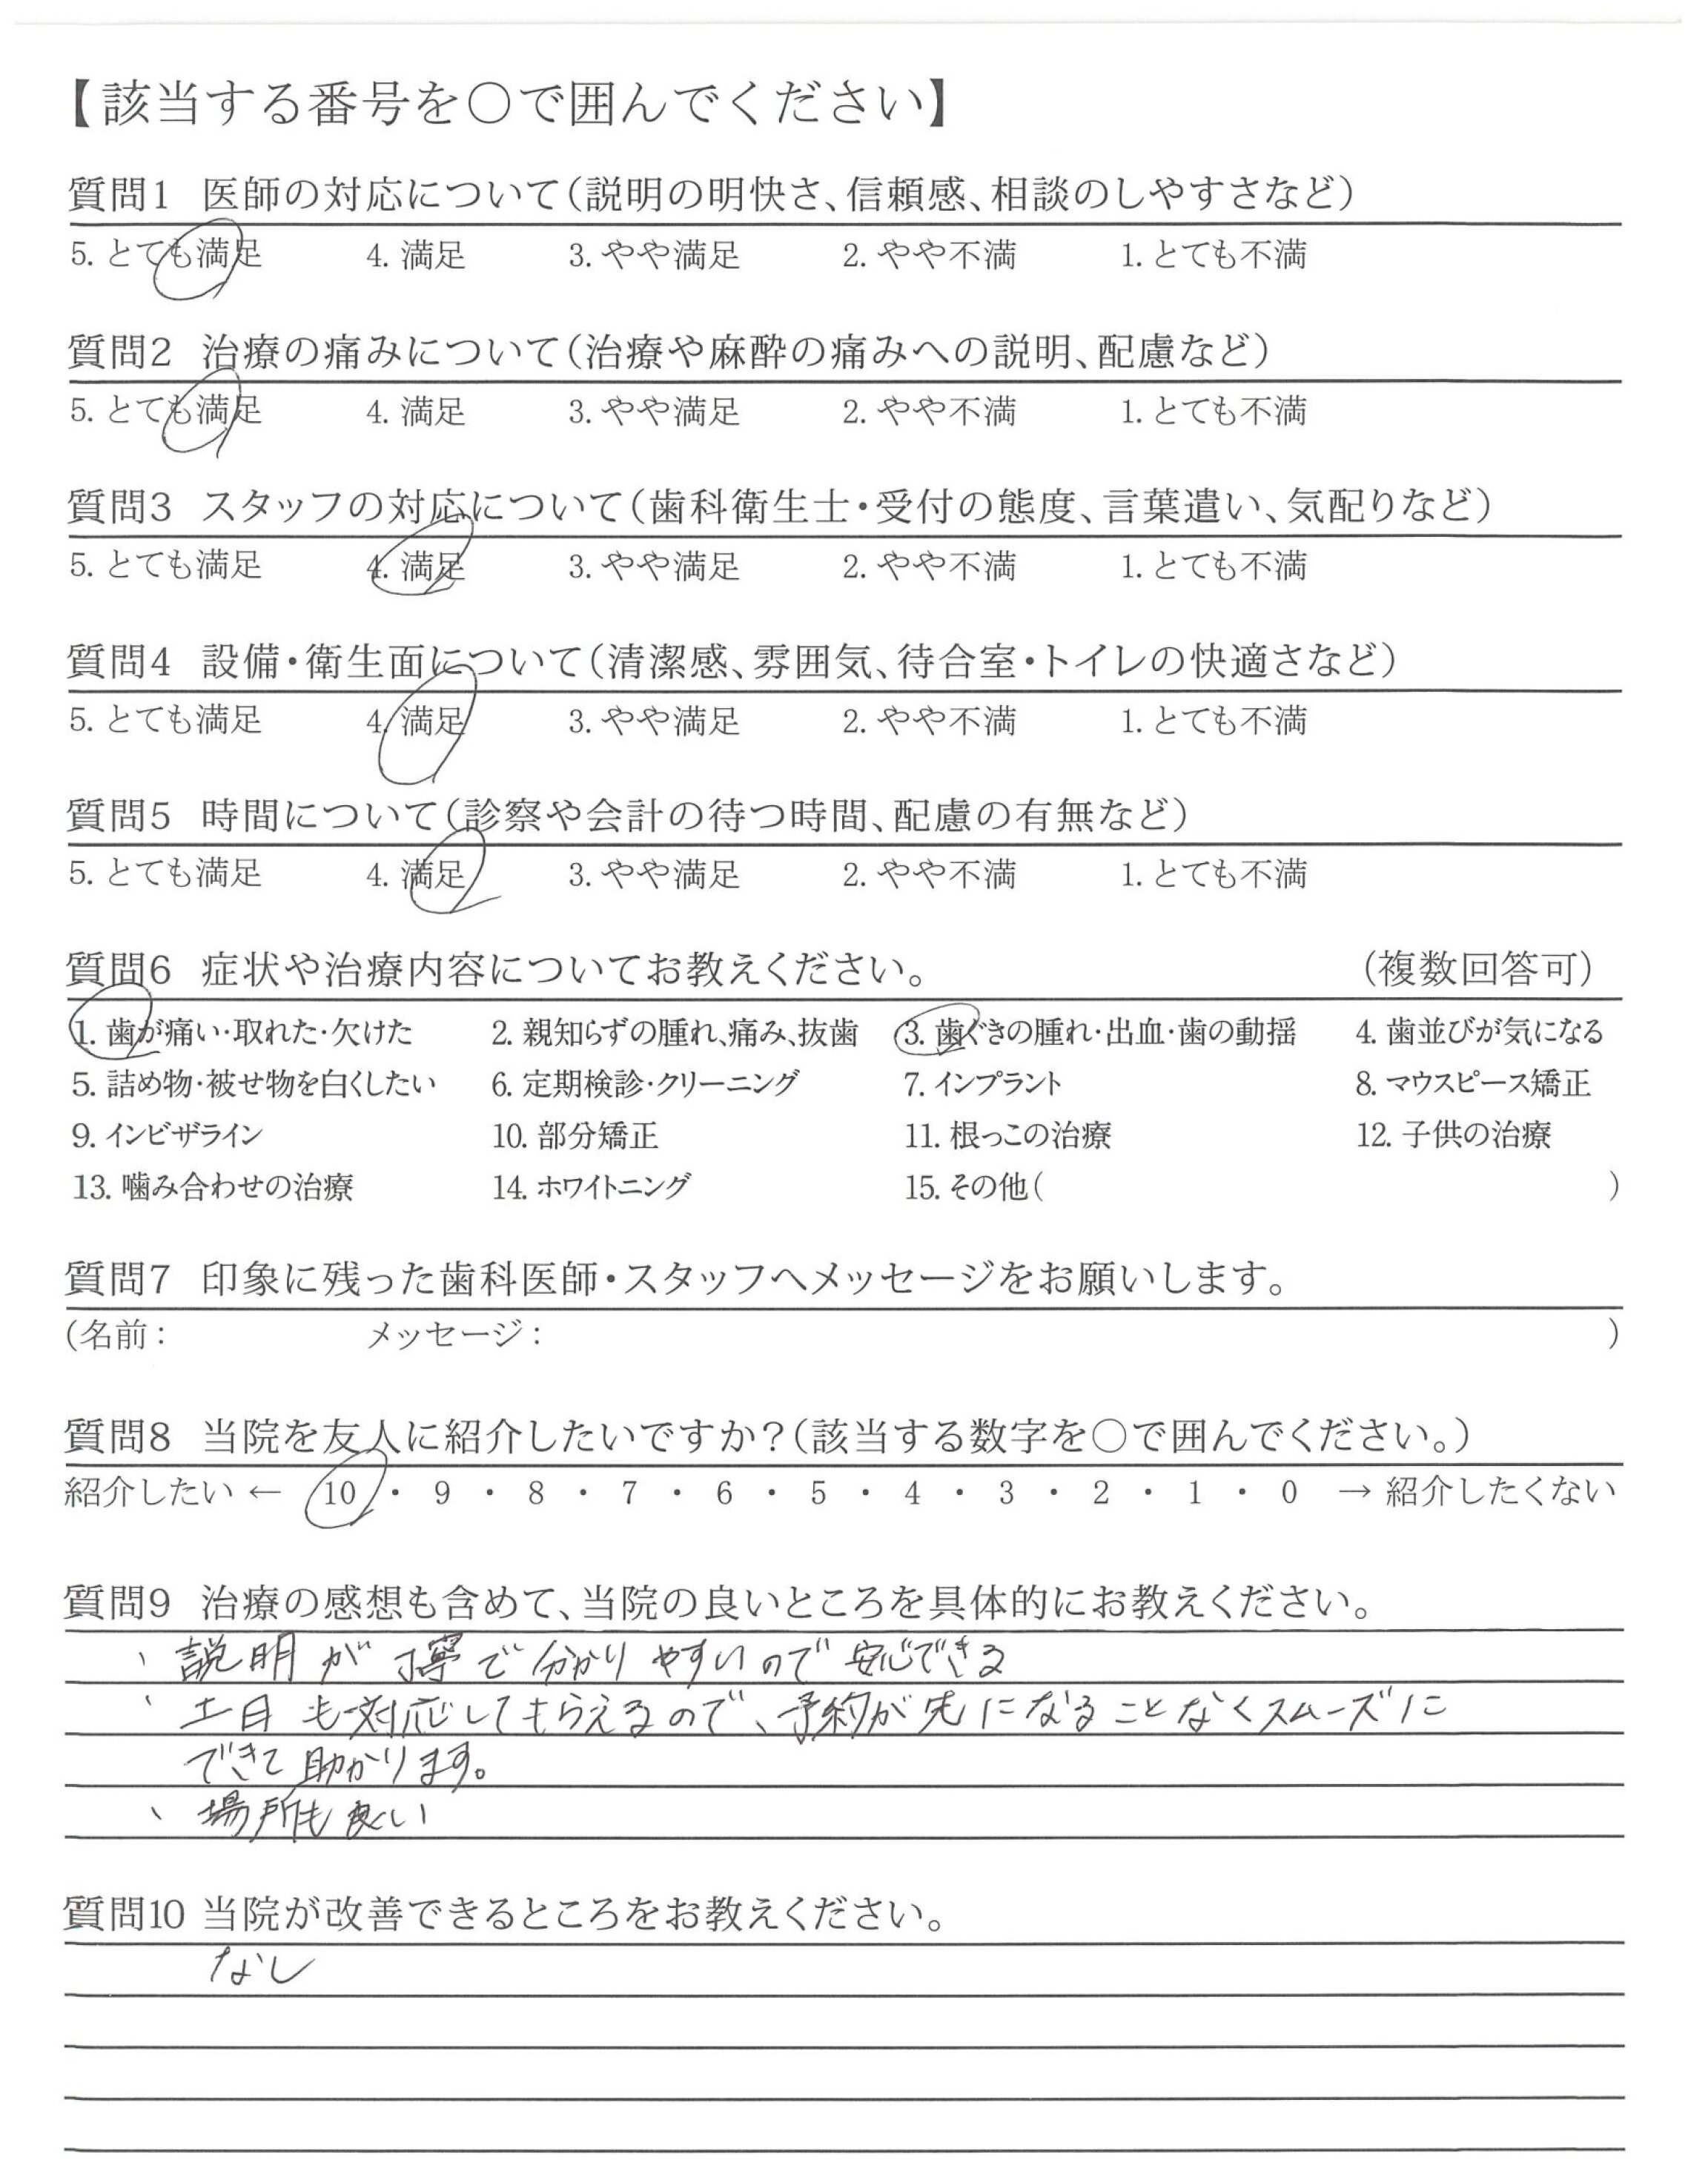 【該当する番号を〇で囲んでください】
質問1 医師の対応について(説明の明快さ、信頼感、相談のしやすさなど)
5. とても満足 4. 満足 3. やや満足 2. やや不満 1. とても不満
質問2 治療の痛みについて(治療や麻酔の痛みへの説明、配慮など)
5. とても満足 4. 満足 3. やや満足 2. やや不満 1. とても不満
質問3 スタッフの対応について(歯科衛生士・受付の態度、言葉遣い、気配りなど)
5. とても満足 4. 満足 3. やや満足 2. やや不満 1. とても不満
質問4 設備・衛生面について(清潔感、雰囲気、待合室・トイレの快適さなど)
5. とても満足 4. 満足 3. やや満足 2. やや不満 1. とても不満
質問5 時間について(診察や会計の待つ時間、配慮の有無など)
5. とても満足 4. 満足 3. やや満足 2. やや不満 1. とても不満
質問6 症状や治療内容についてお教えください。 (複数回答可)
1. 歯が痛い・取れた・欠けた 2. 親知らずの腫れ、痛み、抜歯 3. 歯ぐきの腫れ・出血・歯の動揺 4. 歯並びが気になる
5. 詰め物・被せ物を白くしたい 6. 定期検診・クリーニング 7. インプラント 8. マウスピース矯正
9. インビザライン 10. 部分矯正 11. 根っこの治療 12. 子供の治療
13. 噛み合わせの治療 14. ホワイトニング 15. その他( )
質問7 印象に残った歯科医師・スタッフへメッセージをお願いします。
(名前: メッセージ: )
質問8 当院を友人に紹介したいですか?(該当する数字を〇で囲んでください。)
紹介したい ← 10 ・ 9 ・ 8 ・ 7 ・ 6 ・ 5 ・ 4 ・ 3 ・ 2 ・ 1 ・ 0 → 紹介したくない
質問9 治療の感想も含めて、当院の良いところを具体的にお教えください。
、説明が丁寧で分かりやすいので安心できる
、土日も対応してもらえるので、予約が先になることなくスムーズに
できて助かります。
、場所も良い
質問10 当院が改善できるところをお教えください。
なし